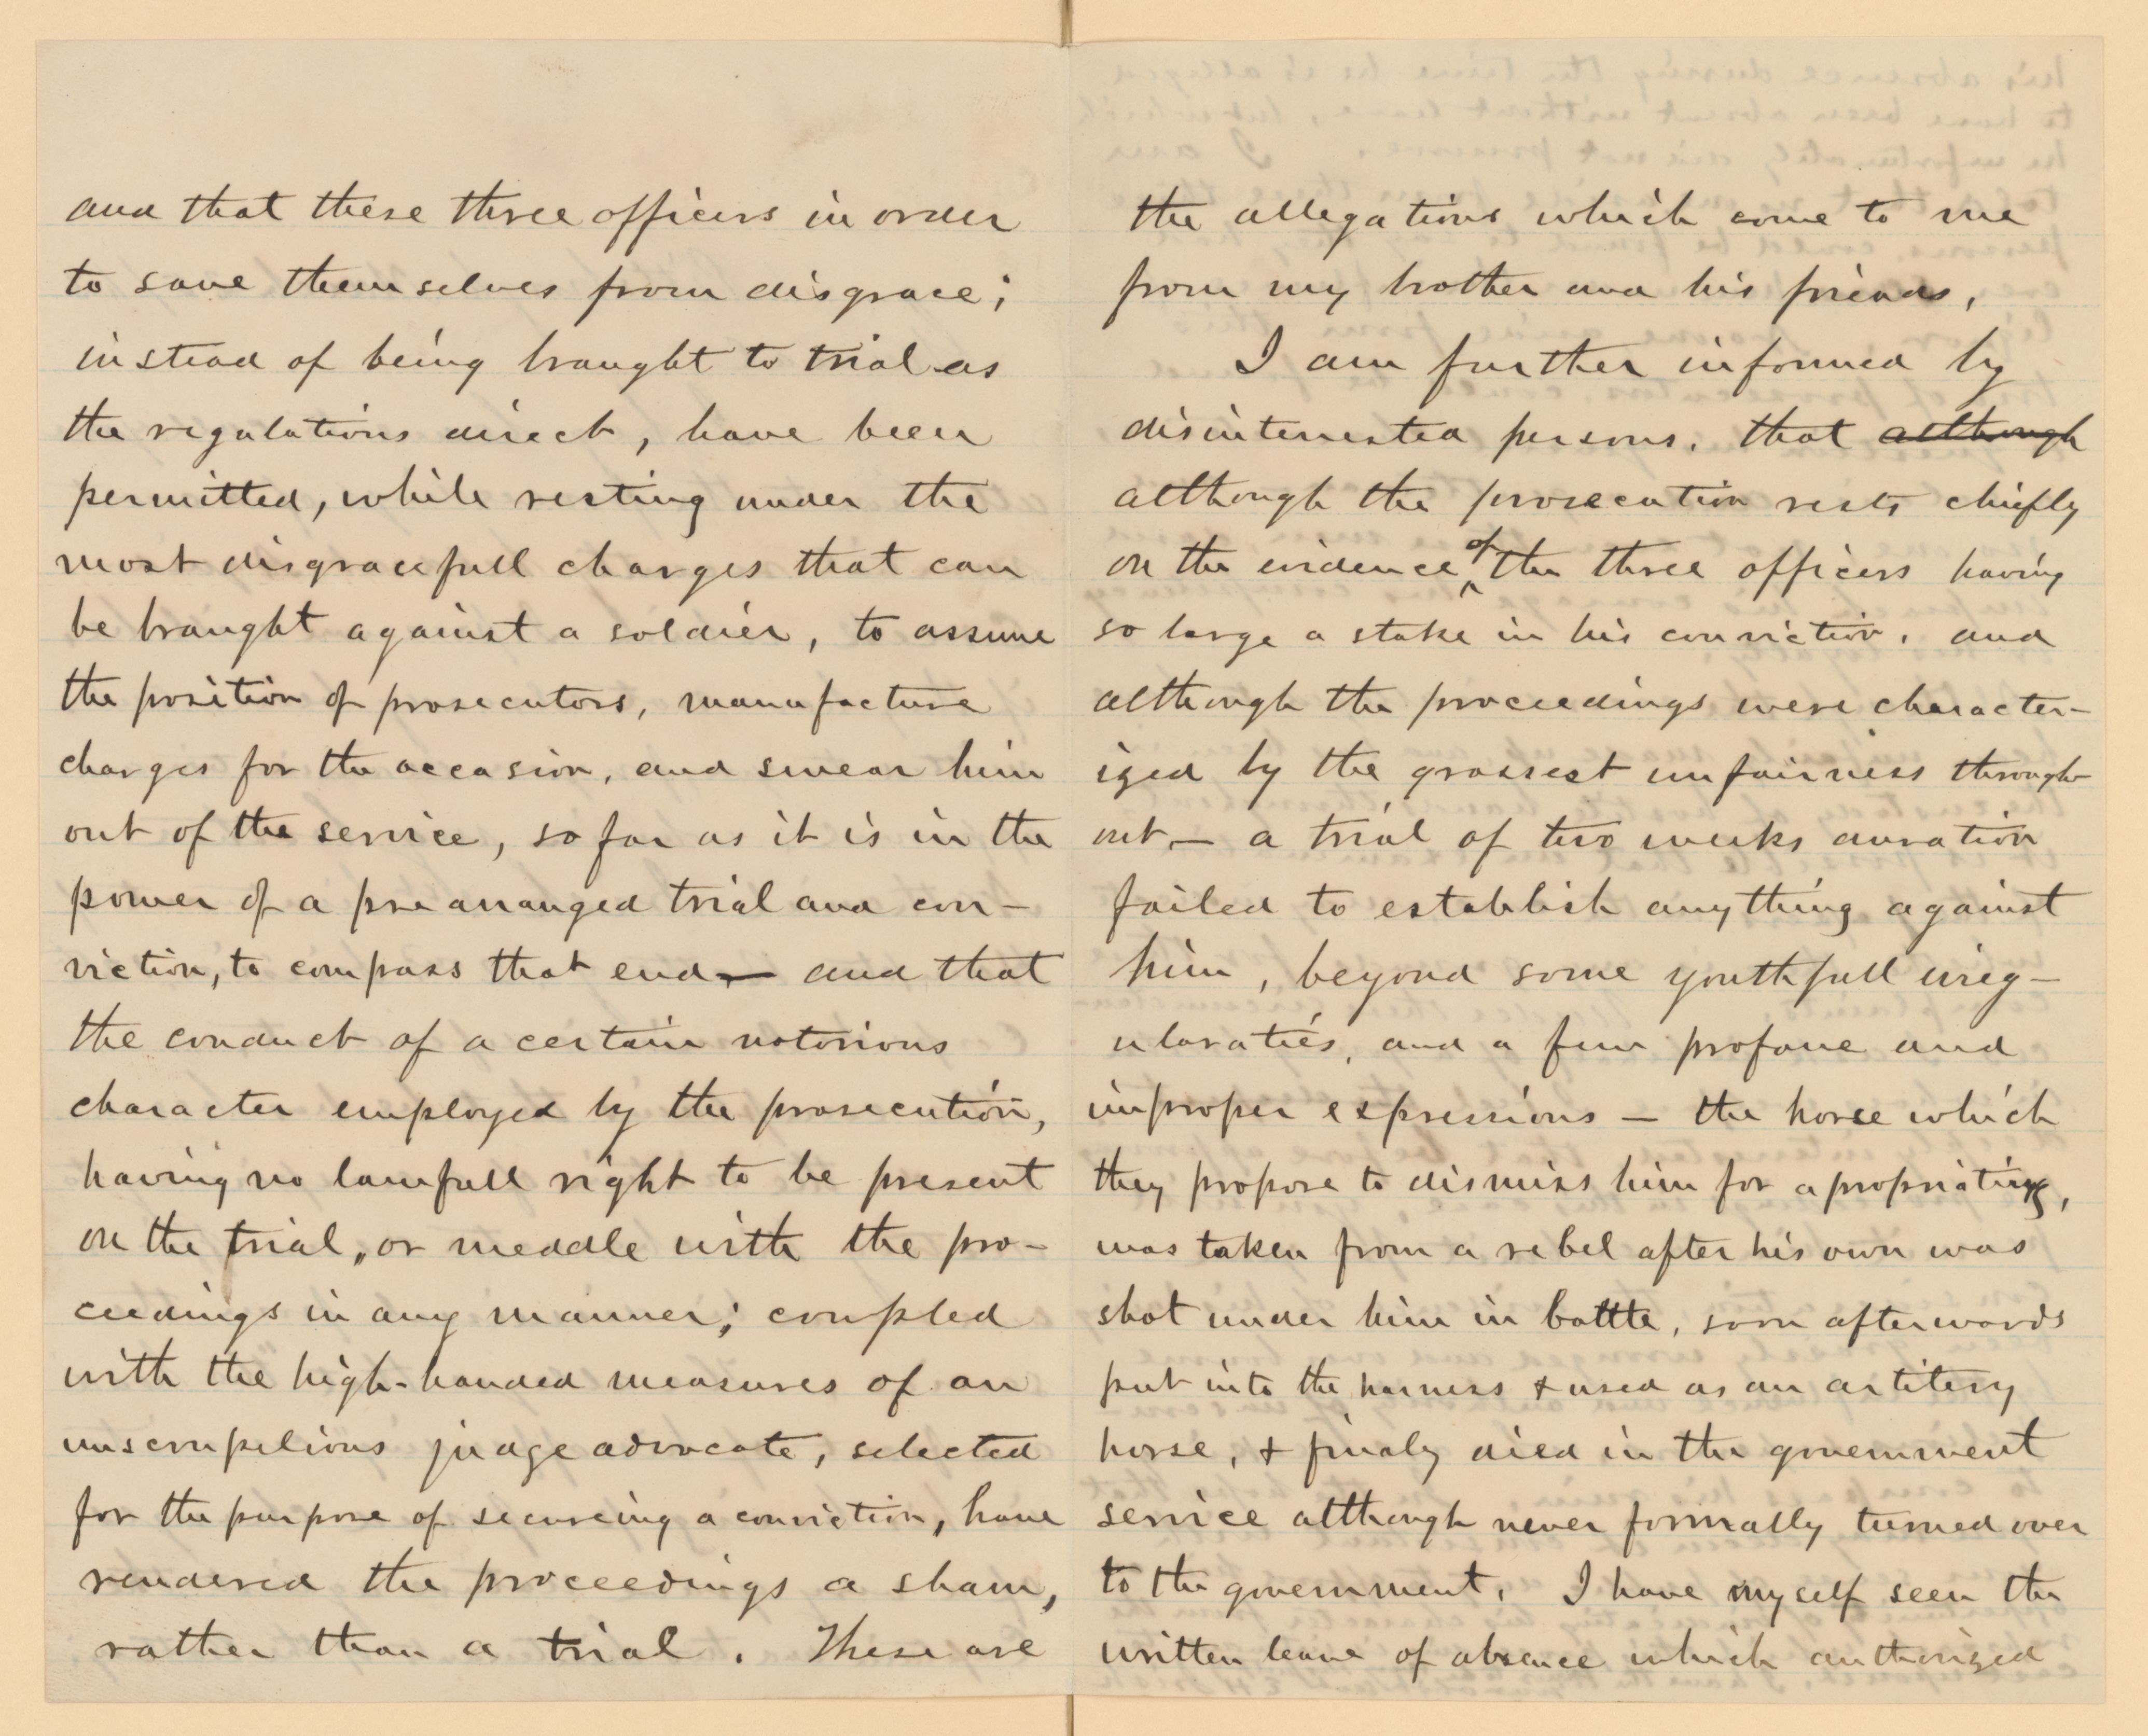 and that these three officers in order
to save themselves from disgrace;
instead of being braught to trial as
the regulations direct, have been
permitted, while resting under the
most disgracefull charges that can
be braught against a soldier, to assume
the position of prosecutors, manufacture
charges for the accasion, and swear him
out of the service, so far as it is in the
power of a prearranged trial and con-
viction, to compass that end — and that
the conduct of a certain notorious
character employed by the prosecution,
having no lawfull right to be present
on the trial, or meddle with the pro-
ceedings in any manner; coupled
with the high-handed measures of an
unscrupelious judge advocate, selected
for the purpose of secureing a conviction, have
rendered the proceedings a sham,
rather than a trial. These are
the allegations which come to me
from my brother and his friends,
I am further informed by
disinterested persons. that although
although the prosecution rests chiefly
on the evidence of the three officers having
so large a stake in his conviction, and
although the proceedings were character-
ized by the grossest unfairness through-
out, — a trial of two weeks duration
failed to establish anything against
him, beyond some youthfull ireg-
ularaties, and a few profane and
improper expressions — the horse which
they propose to dismiss him for apropriating,
was taken from a rebel after his own was
shot under him in battle, soon afterwards
put into the harness & used as an artilery
horse, & finaly died in the government
service although never formally turned over
to the government. I have myself seen the
written leave of absence which authorized